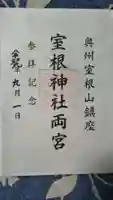 奥州室根山鎮座
室根神社両宮
参拝記念
九月一日